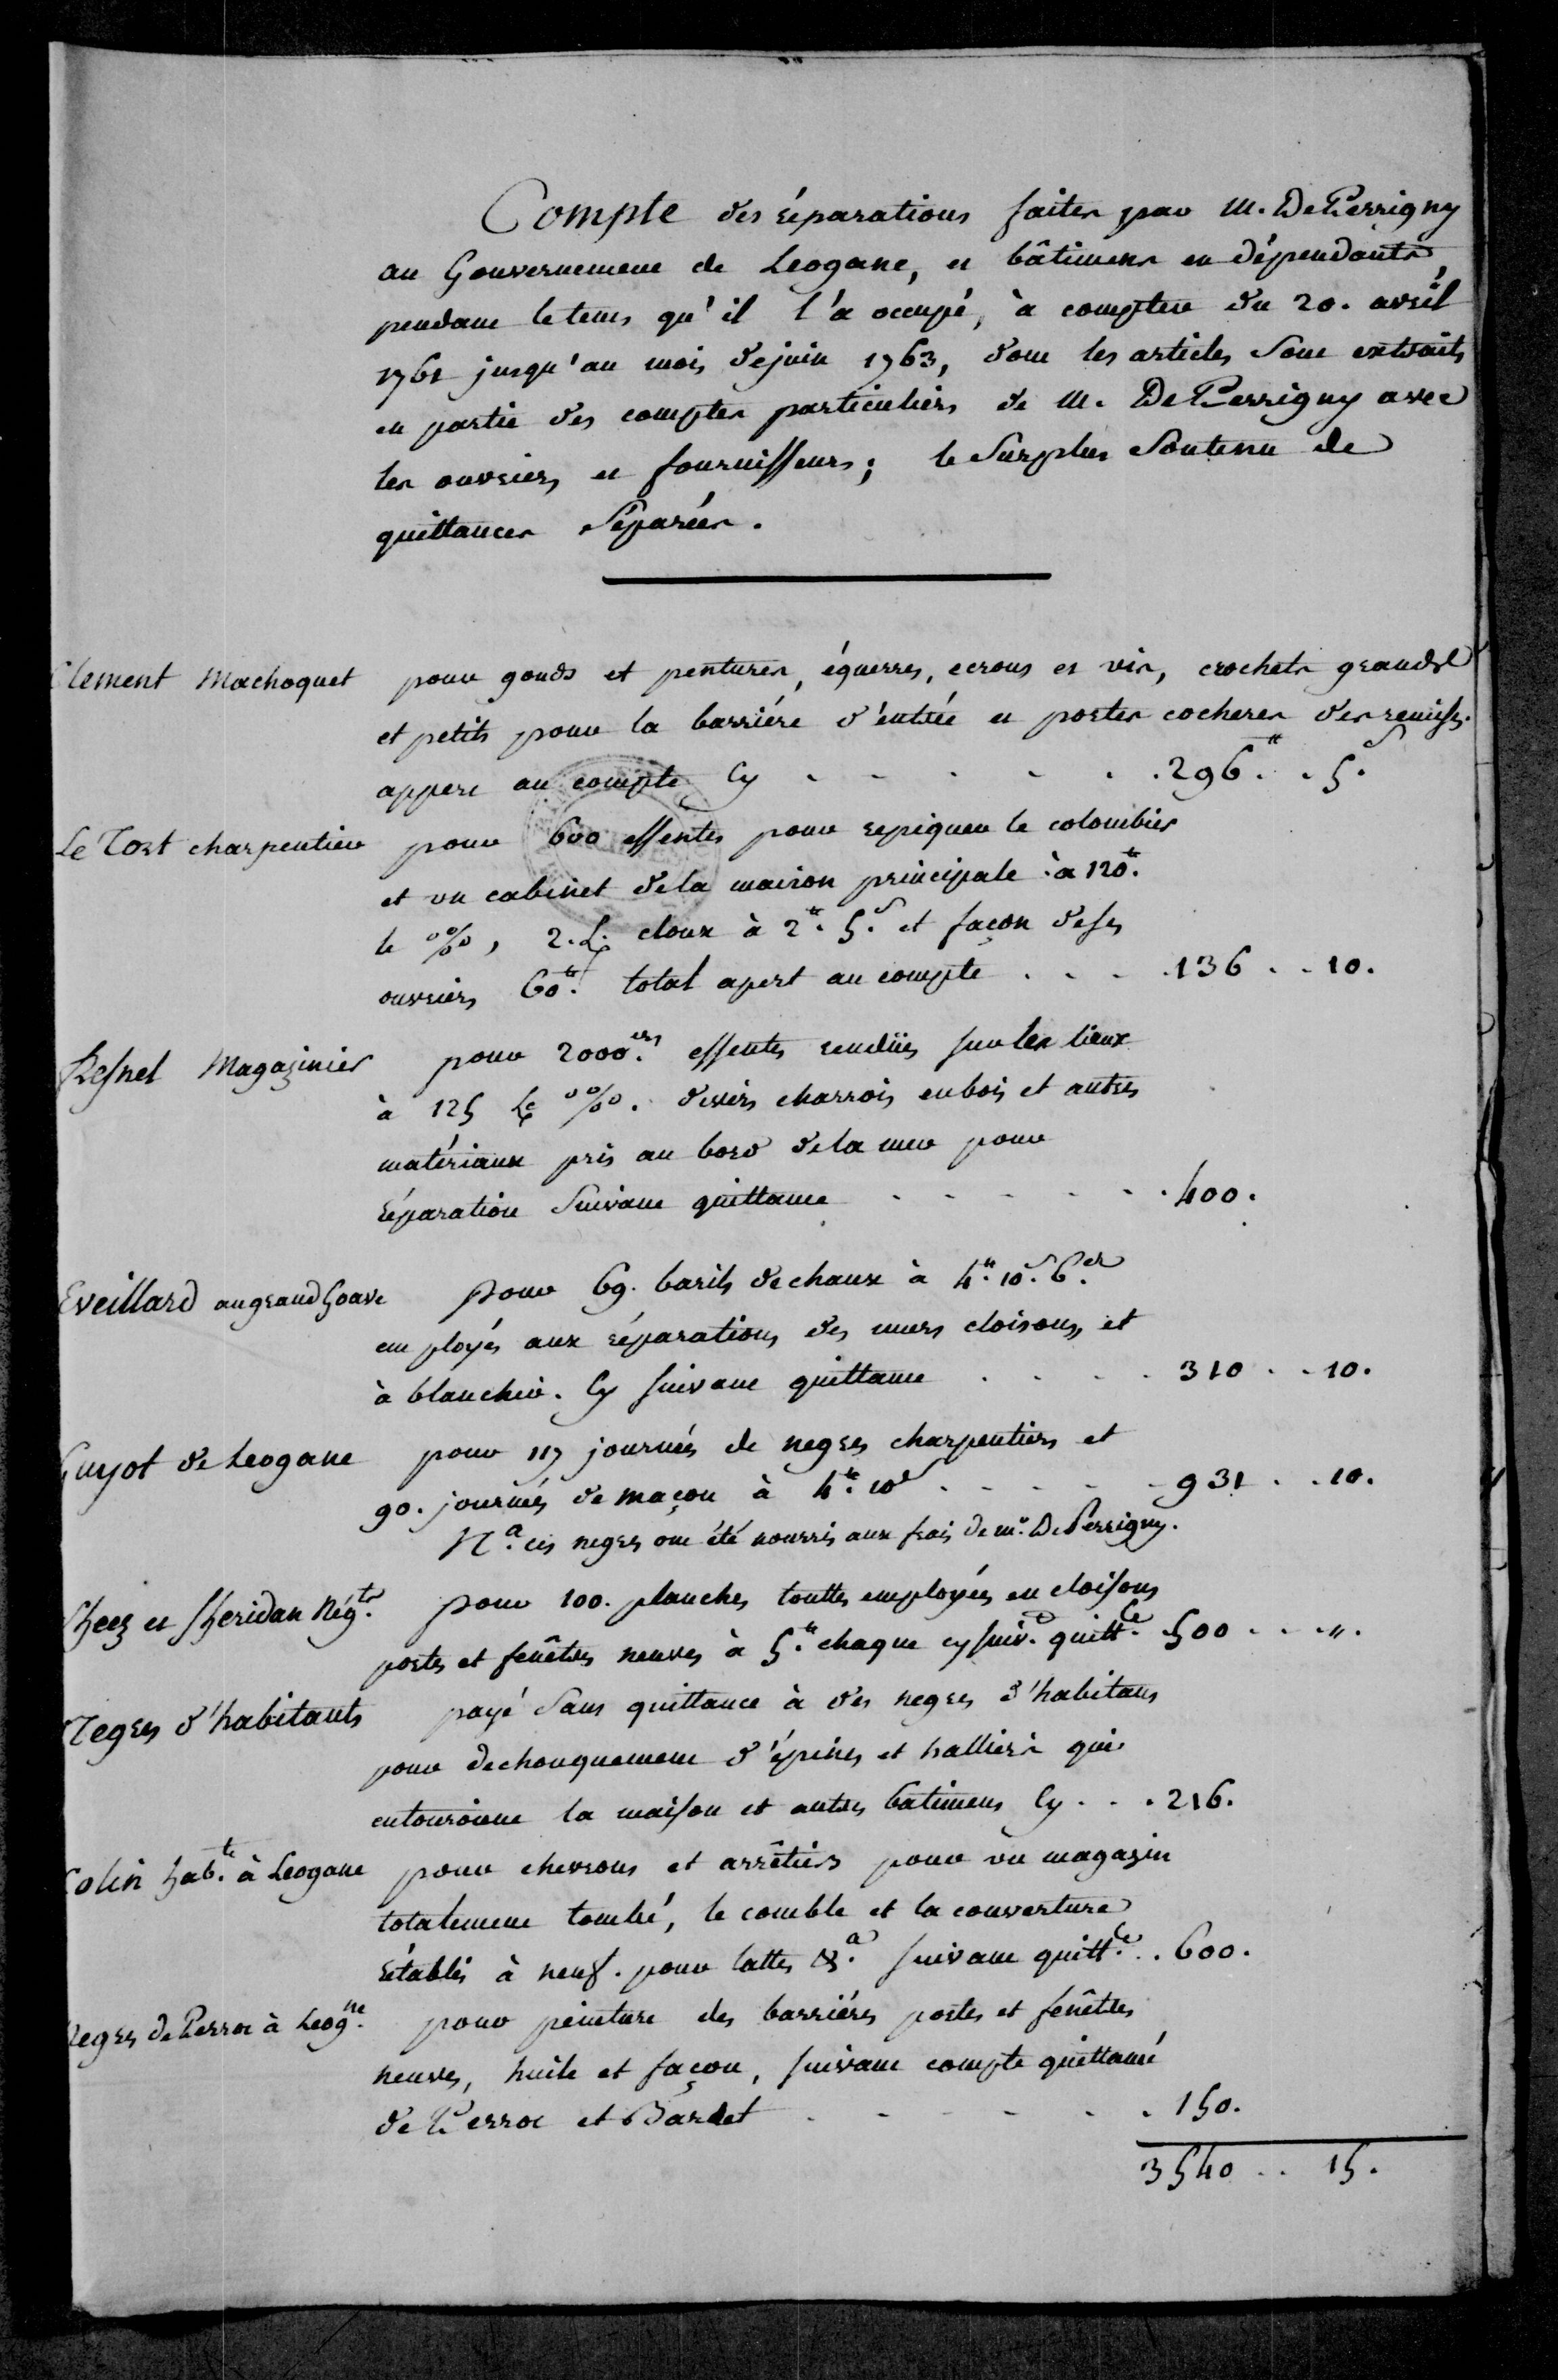 Compte des réparations faites par M. De Perrigny
au Gouvernement de Leogane, et bâtimens en dépendants,
pendant le tems qu'il l'a occupé, à compter du 20. avril
1761 jusqu'au mois de juin 1763, dont les articles sont extraits
en partie des comptes particuliers de M. De Perrigny avec
les ouvriers et fournisseurs; le surplus soutenu de
quittances séparées.
Clement Machoquet pour gonds et pentures, équerres, ecrous et vis, crochets grands
et petits pour la barriére d'entrée et portes cocheres des remises.
appert au compte Cy . . . . . . 296.# . 5.s
Le Tort charpentier pour 600 essentes pour repiquer le colombier
et un cabinet de la maison principale à 120.#
le %, 2. L. cloux à 2.# 5.s et façon de ses
ouvriers 60.# total apert au compte . . . 136 . . 10.
Resnel Magazinier pour 2000.es essentes rendües sur les lieux
à 125 Le %. divers charrois en bois et autres
matériaux pris au bord de la mer pour
réparation suivant quittance . . . . . . 400.
Eveillard au grand Goave pour 69. barils de chaux à 4.# 10.s 6.d
employés aux réparations des murs cloisons, et
à blanchir. Cy suivant quittance . . . . 310 . . 10.
Guyot de Leogane pour 117 journées de negres charpentiers et
90. journées de maçon à 4.# 10s . . . . . 931 . . 10.
N.a ces negres ont été nourris aux frais de m.r De Perrigny.
et Sheridan Nég.ts pour 100. planches touttes employées en cloisons
portes et fenêtres neuves à 5.# chaque cy suiv.t quitt.ce 500 . . . ".
Negres d'habitants payé sans quittance à des negres d'habitans
pour dechouquement d'épines et halliers qui
entouroient la maison et autres batimens Cy . . . 216.
Colin hab.t à Leogane pour chevrons et arrêtiers pour un magazin
totalement tombé, le comble et la couverture
rétablis à neuf. pour lattes &.a suivant quitt.ce . 600.
Negres de Perroc à Leog.ne pour peinture des barriéres portes et fenêtres
neuves, huile et façon, suivant compte quittancé
de Perroc et Bardet . . . . . . 150.
3540 . . 15.